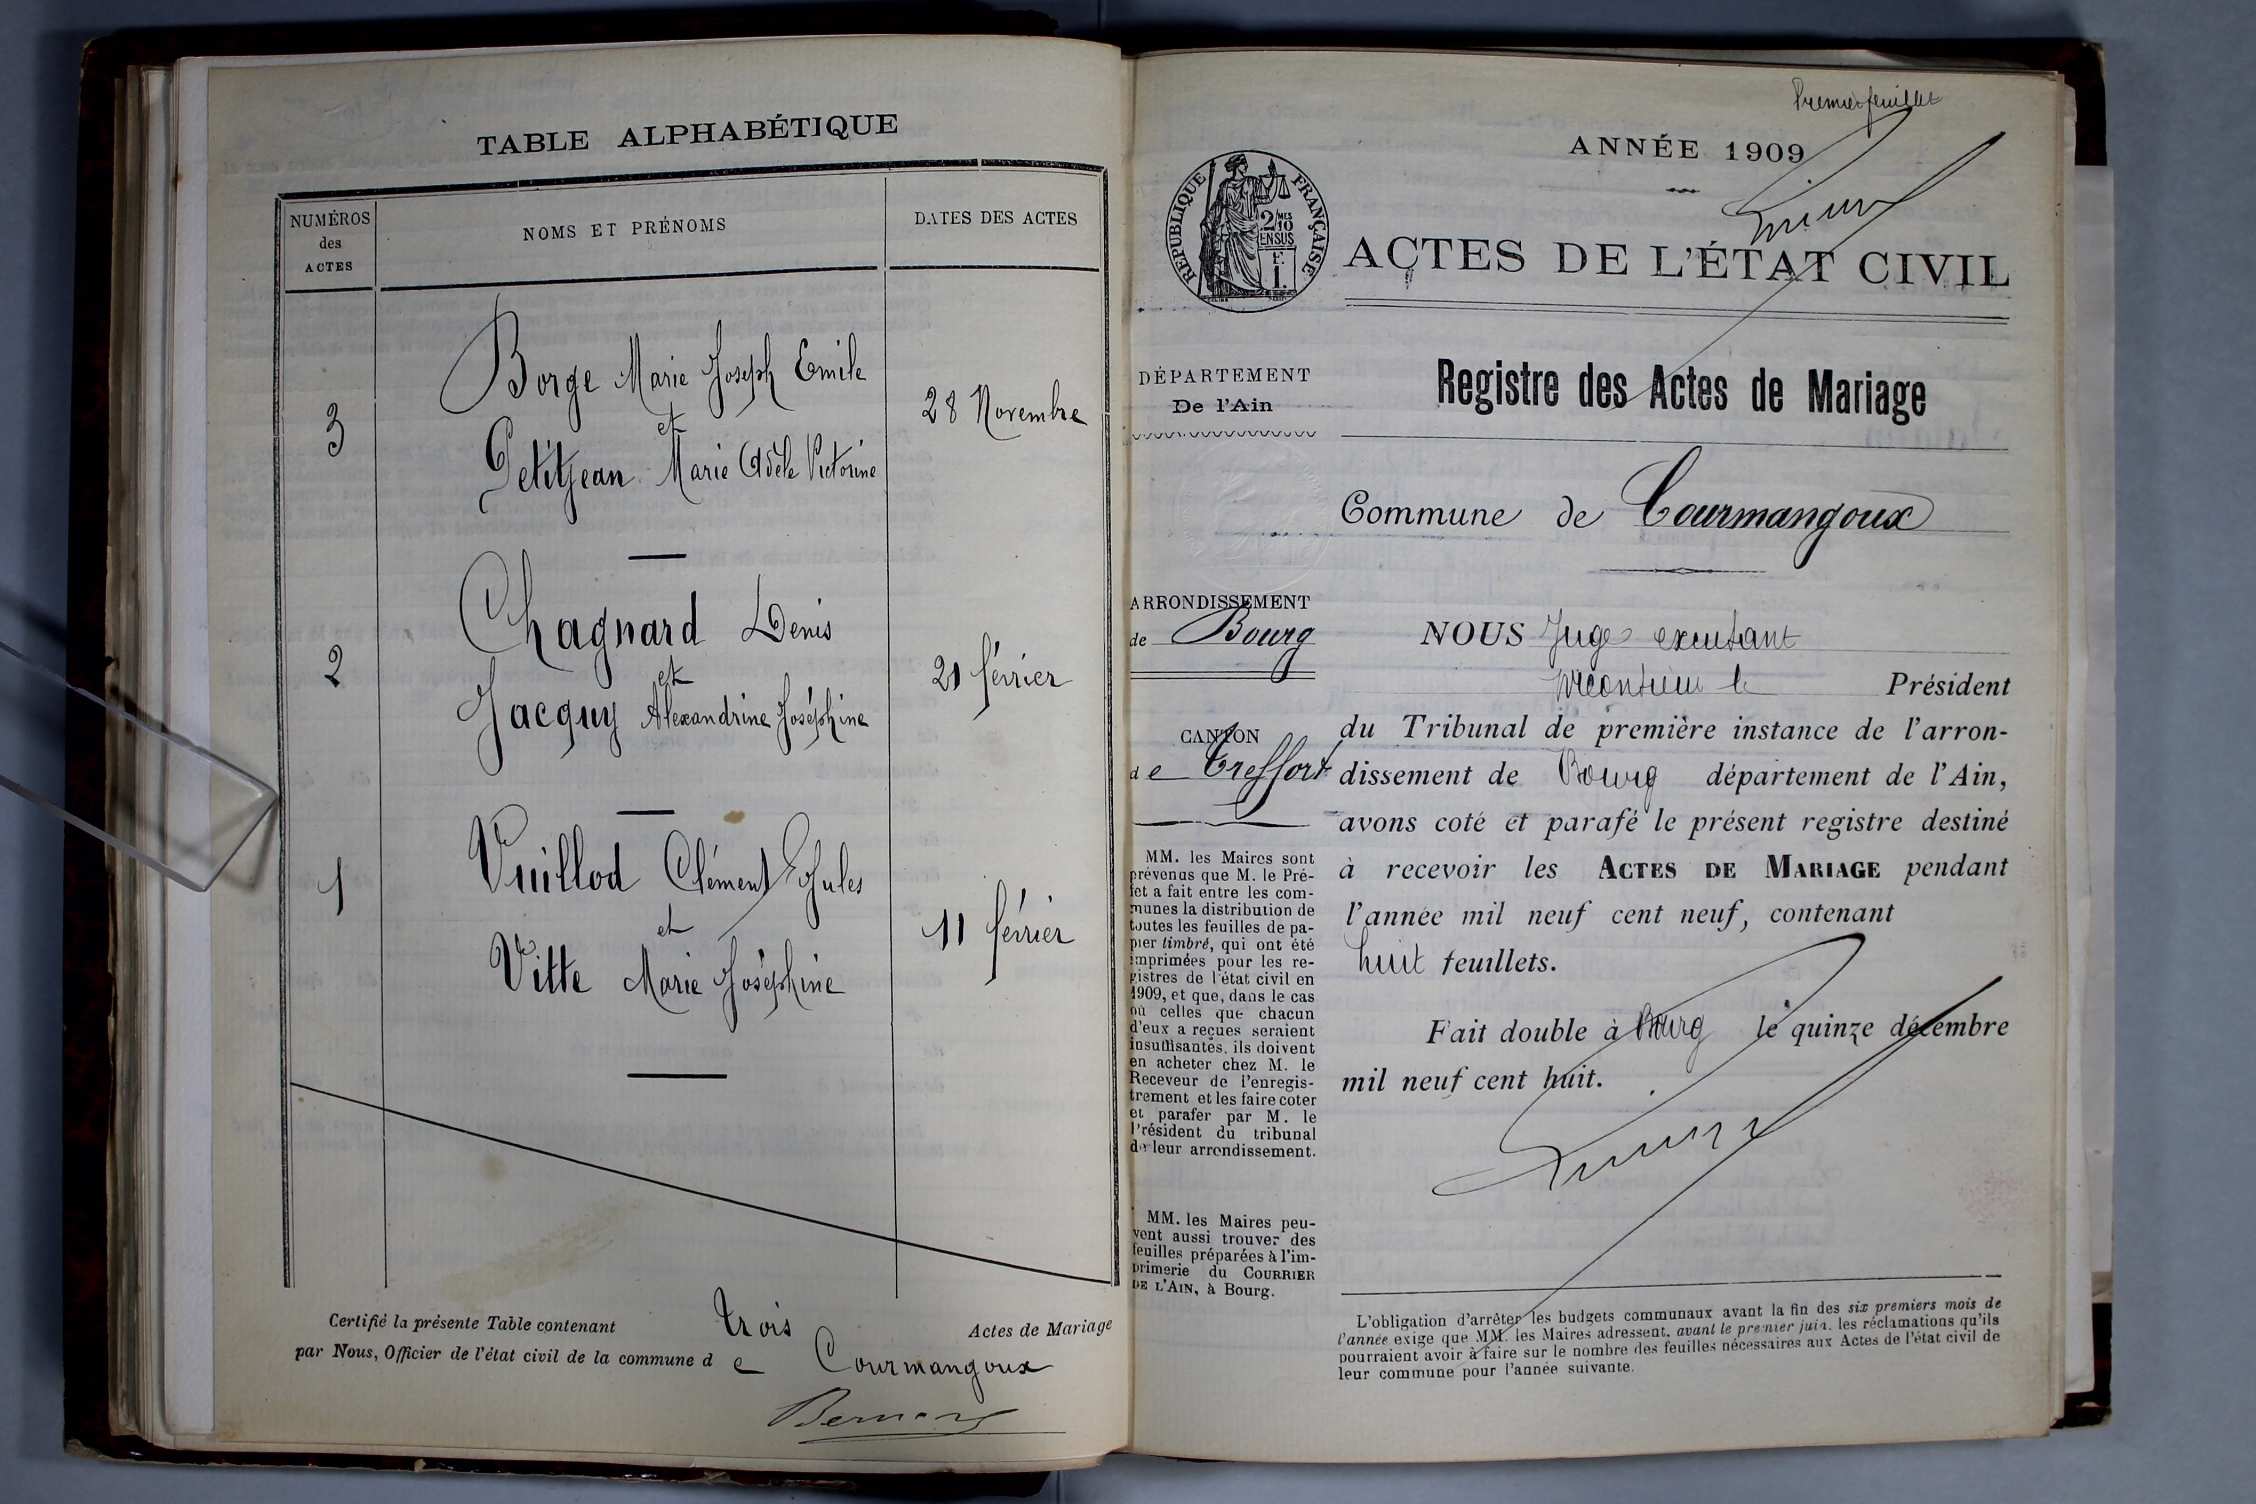 TABLE ALPHABÉTIQUE
NUMÉROS
des
ACTES
NOMS ET PRÉNOMS
DATES DES ACTES
3
Borge Marie Joseph Emile
et
Petitjean Marie Adèle Victorine
28 Novembre
2
Chagnard Denis
et
Jacquy Alexandrine Joséphine
21 février
1
Vuillod Clément Jules
et
Vitte Marie Joséphine
11 février
Certifié la présente Table contenant trois Actes de Mariage
par Nous, Officier de l'état civil de la commune de Courmangoux
Premier feuillet
ANNÉE 1909
RÉPUBLIQUE FRANÇAISE
2/10
MES
EN SUS
1 F.
ACTES DE L'ÉTAT CIVIL
DÉPARTEMENT
De l'Ain
Registre des Actes de Mariage
Commune de Courmangoux
ARRONDISSEMENT
de Bourg
CANTON
de Treffort
MM. les Maires sont
prévenus que M. le Pré-
fet a fait entre les com-
munes la distribution de
toutes les feuilles de pa-
pier timbré, qui ont été
imprimées pour les re-
gistres de l'état civil en
1909, et que, dans le cas
où celles que chacun
d'eux a reçues seraient
insuffisantes, ils doivent
en acheter chez M. le
Receveur de l'enregis-
trement et les faire coter
et parafer par M. le
Président du tribunal
de leur arrondissement.
MM. les Maires peu-
vent aussi trouver des
feuilles préparées à l'im-
primerie du COURRIER
DE L'AIN, à Bourg.
NOUS Juge
le Président
du Tribunal de première instance de l'arron-
dissement de Bourg département de l'Ain,
avons coté et parafé le présent registre destiné
à recevoir les ACTES DE MARIAGE pendant
l'année mil neuf cent neuf, contenant
huit feuillets.
Fait double à Bourg le quinze décembre
mil neuf cent huit.
L'obligation d'arrêter les budgets communaux avant la fin des six premiers mois de
l'année exige que MM. les Maires adressent, avant le premier juin, les réclamations qu'ils
pourraient avoir à faire sur le nombre des feuilles nécessaires aux Actes de l'état civil de
leur commune pour l'année suivante.